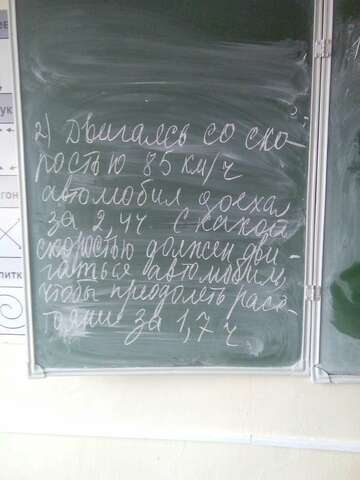 2) Двигаясь со ско-
ростью 85 км/ч
автомобил доехал
за 2,4ч С какой
скоростью должен дви-
гаться автомобиль,
чтобы преодолеть расс-
тояние за 1,7 ч
ук
гон
питк